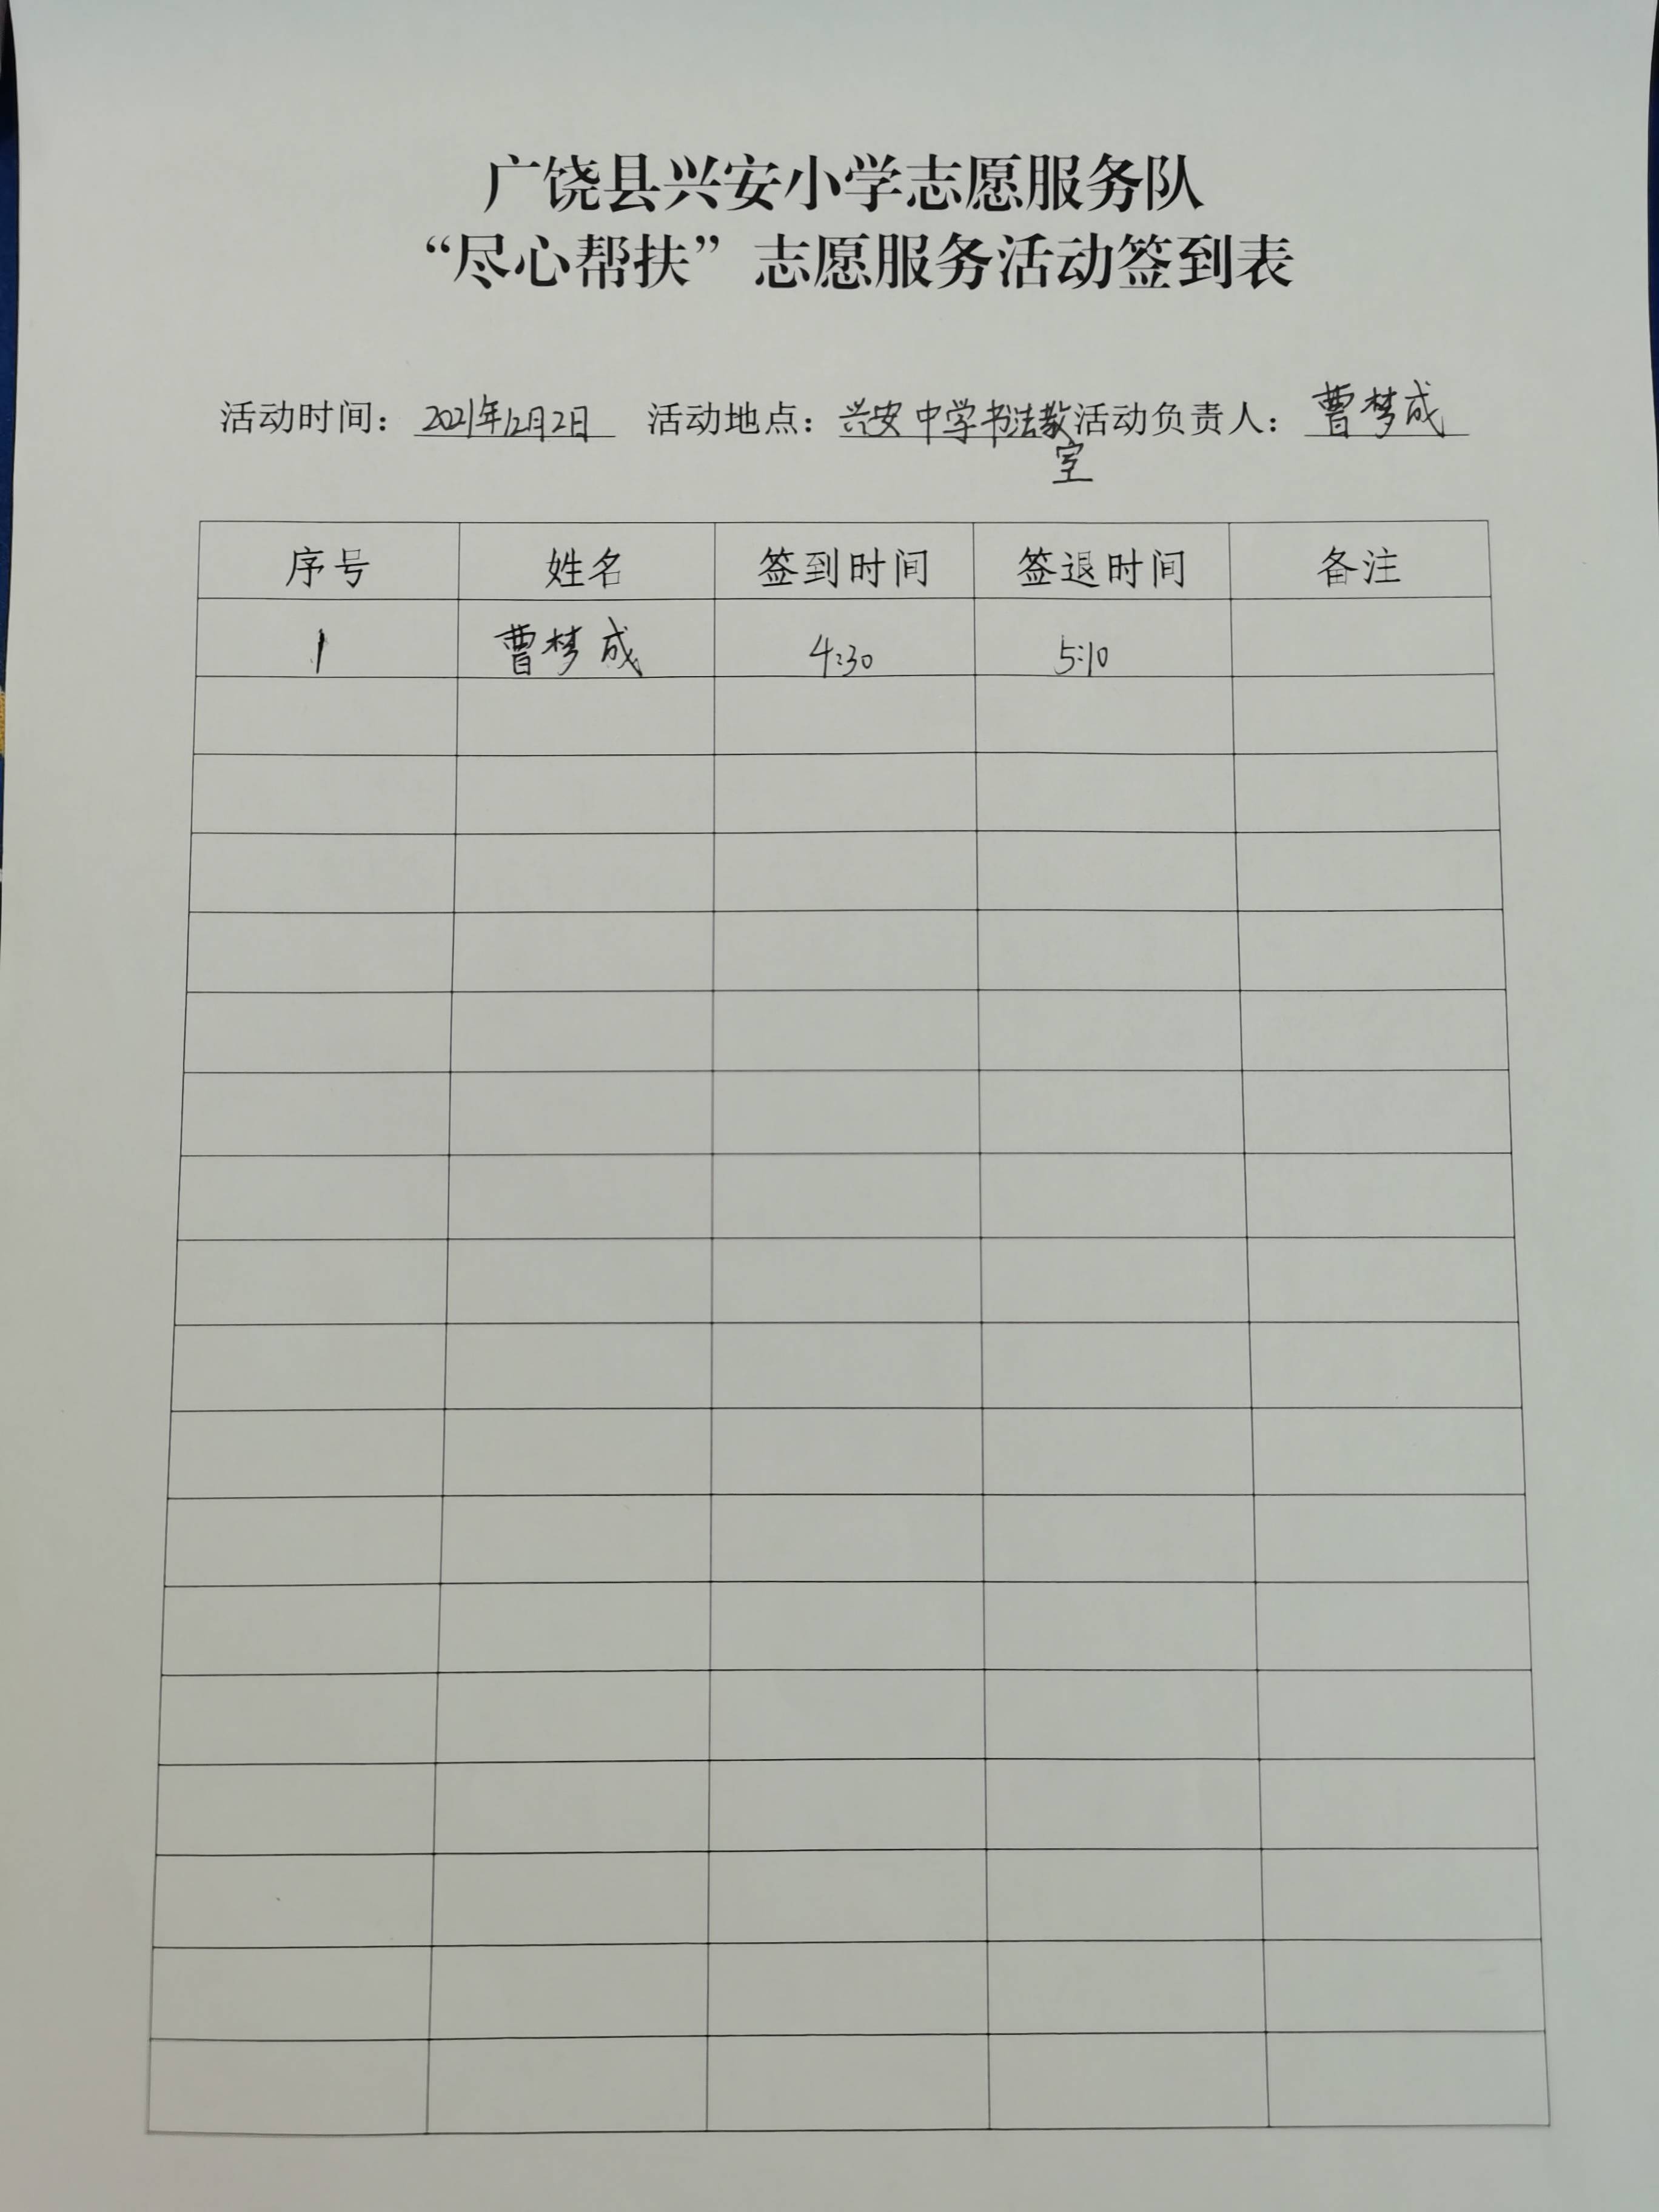 广饶县兴安小学志愿服务队
“尽心帮扶”志愿服务活动签到表
活动时间：2021年12月2日 活动地点：兴安中学书法教室 活动负责人：曹梦成
序号 姓名 签到时间 签退时间 备注
1 曹梦成 4:30 5:10